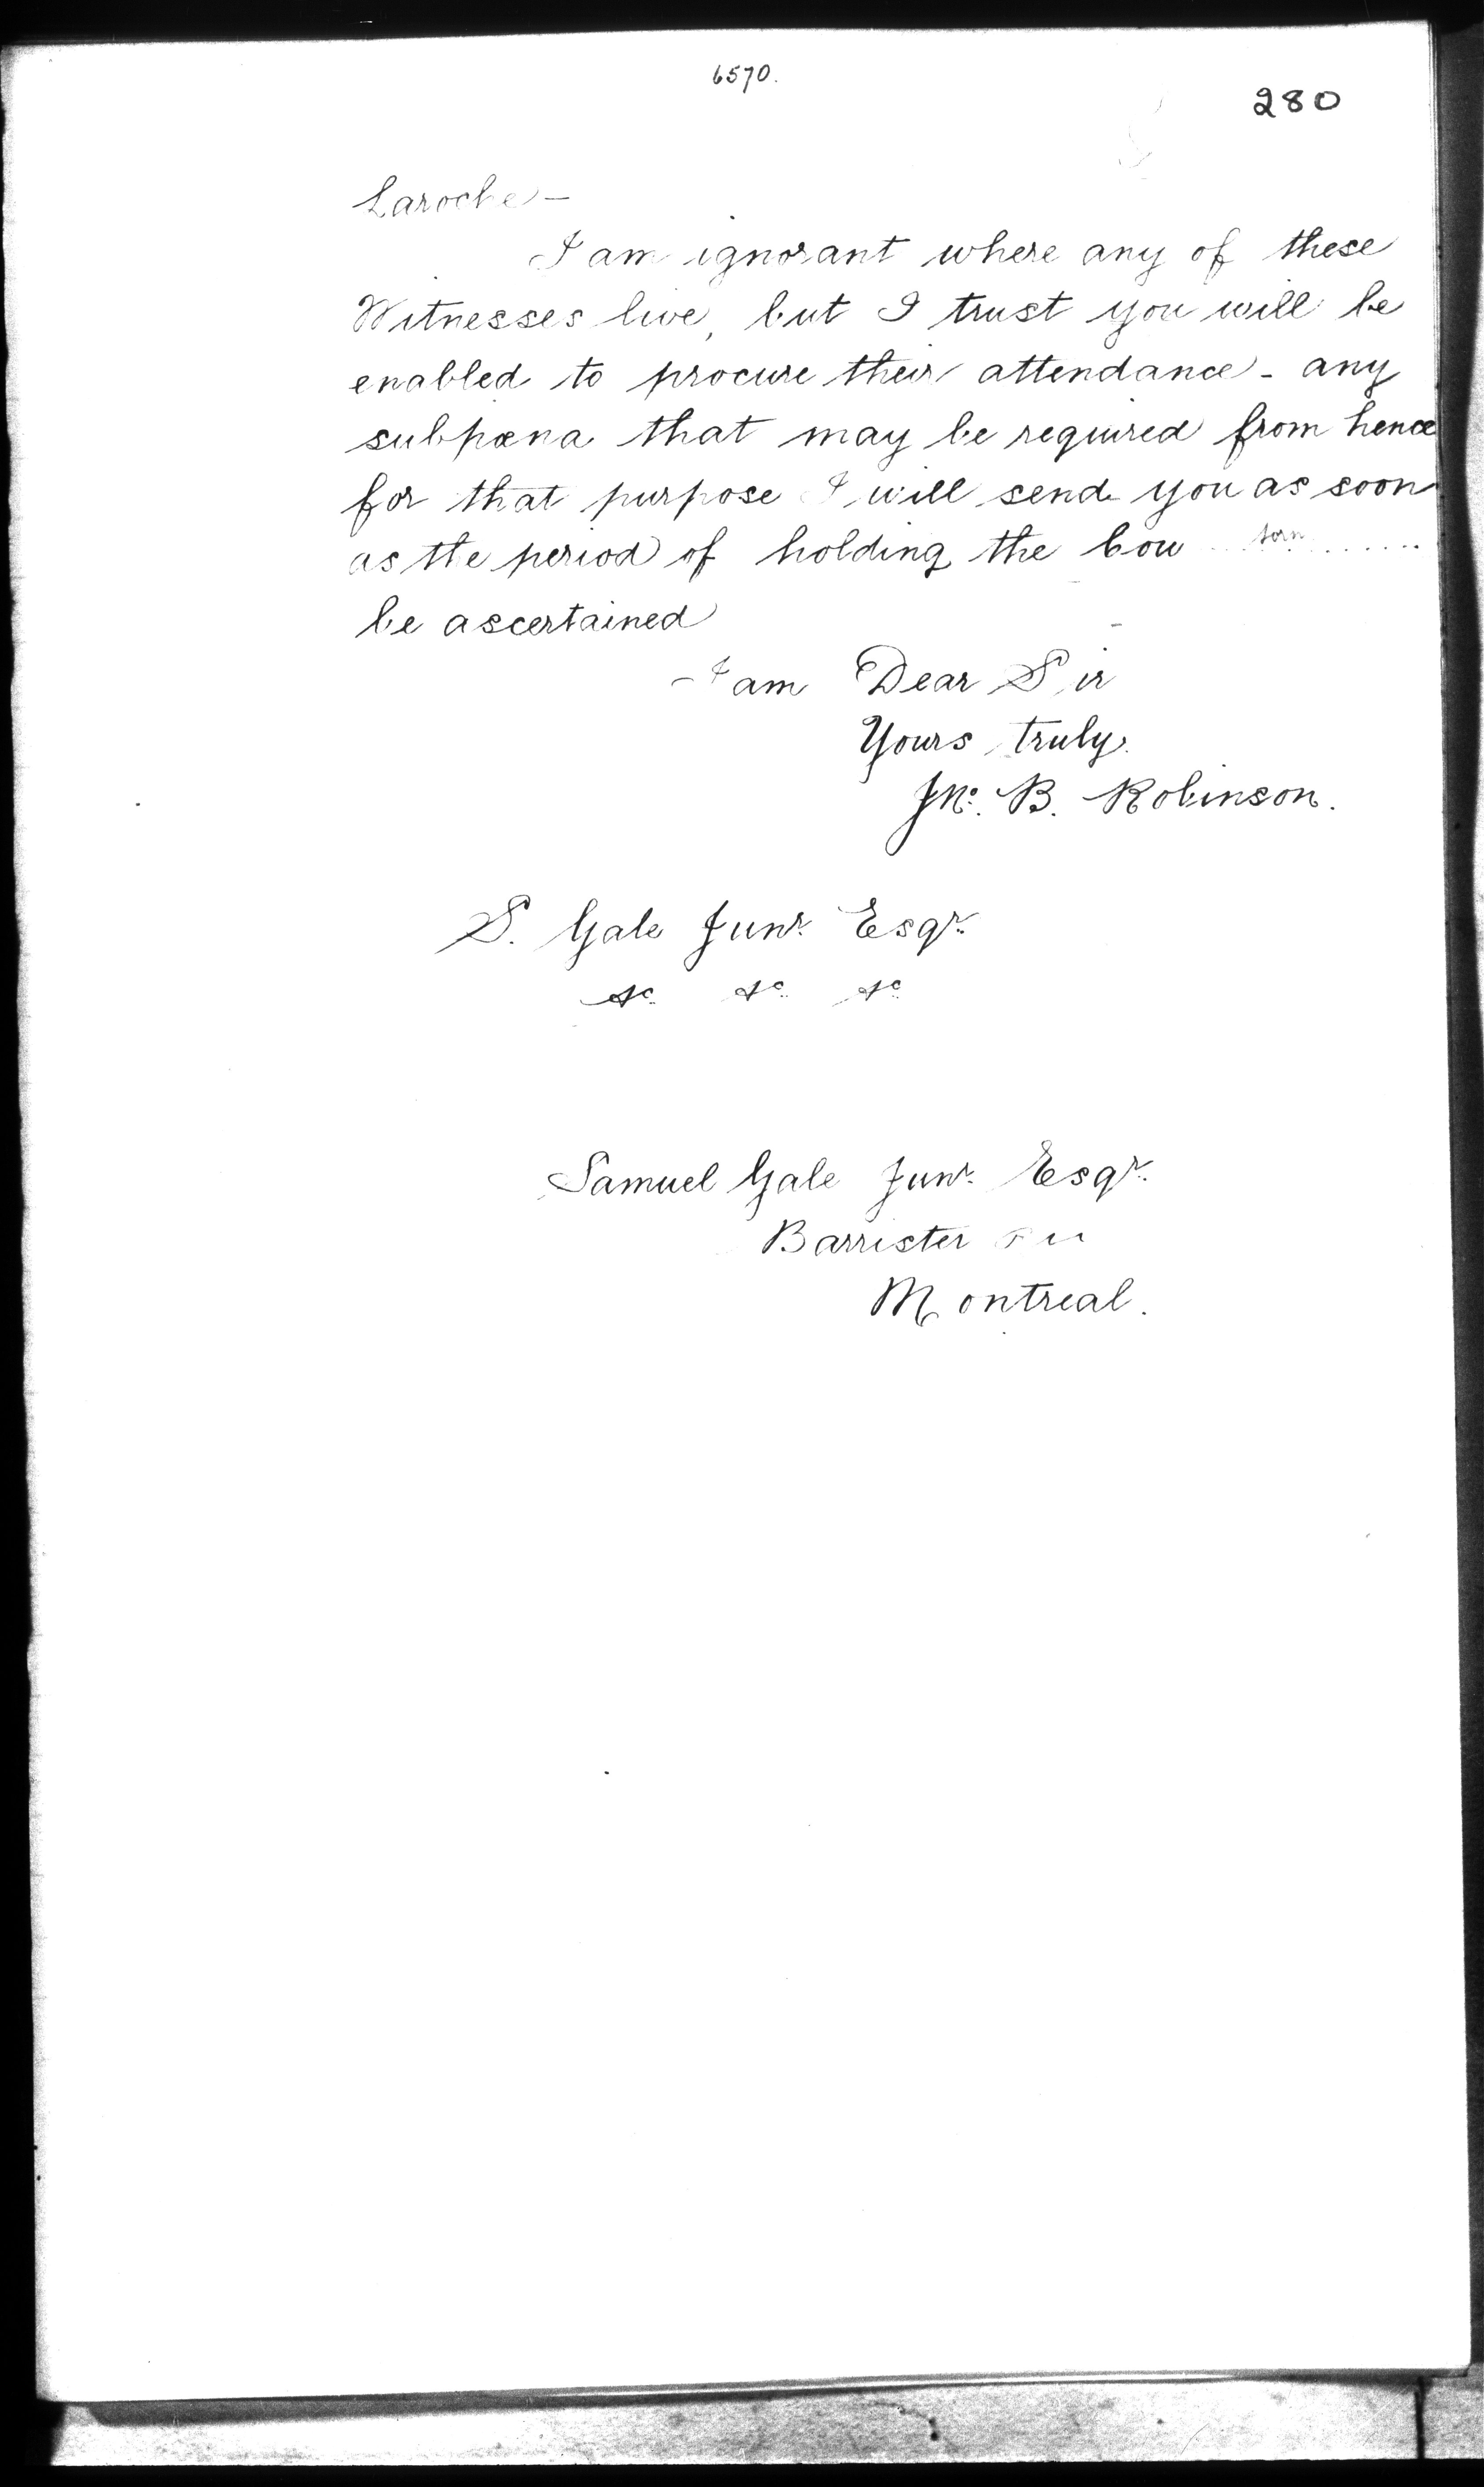 6570.
280
Laroche -
I am ignorant where any of these
Witnesses live, but I trust you will be
enabled to procure their attendance - any
subpœna that may be required from hence
for that purpose I will send you as soon
as the period of holding the Cou .. torn ......
be ascertained
- I am Dear Sir
Yours truly.
Jno. B. Robinson.
S. Gale Junr. Esqr.
&c. &c. &c.
Samuel Gale Junr. Esqr.
Barrister
Montreal.